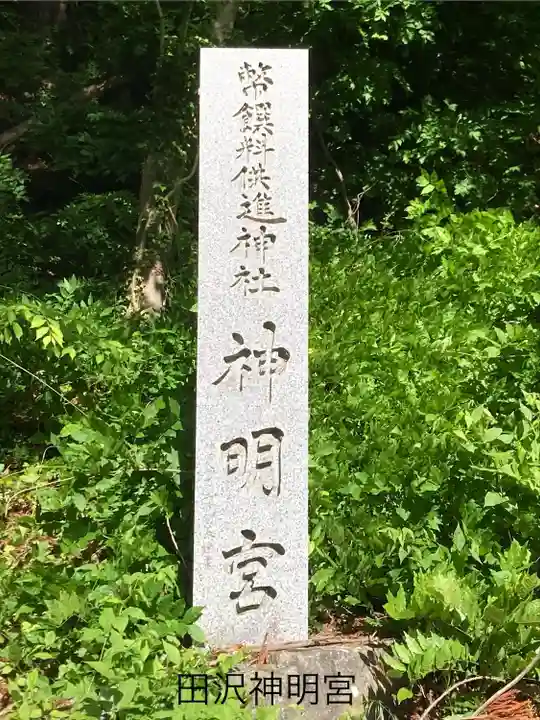 幣饌料供進神社
神明宮
田沢神明宮